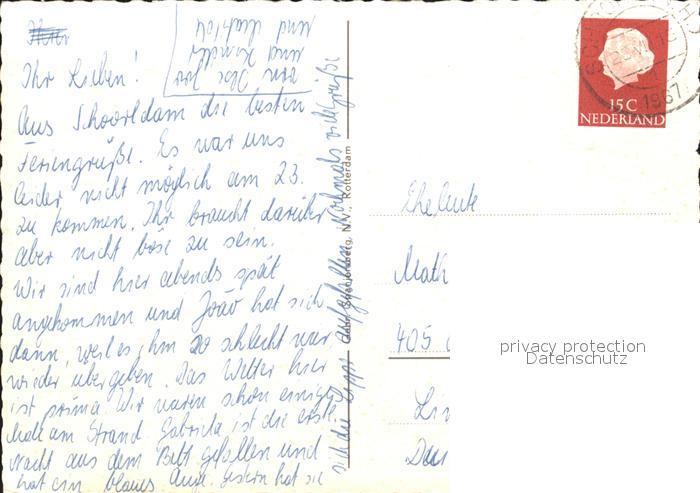 Ihr Lieben!
Aus Schoorldam die besten
Feriengrüße. Es war uns
leider nicht möglich am 23.
zu kommen. Ihr braucht darüber
aber nicht böse zu sein.
Wir sind hier abends spät
angekommen und João hat sich
dann, weil es ihm so schlecht war
wieder übergeben. Das Wetter hier
ist prima. Wir waren schon einige
Male am Strand. Gabriela ist die erste
Nacht aus dem Bett gefallen und
hat ein blaues Auge. Gestern hat sie
sich die Lippe aufgefallen. Nochmals viele Grüße
von
und
und
Gebr. Spanjersberg N.V., Rotterdam
15 C
NEDERLAND
1967
Eheleute
Math
405
Lin
privacy protection
Datenschutz